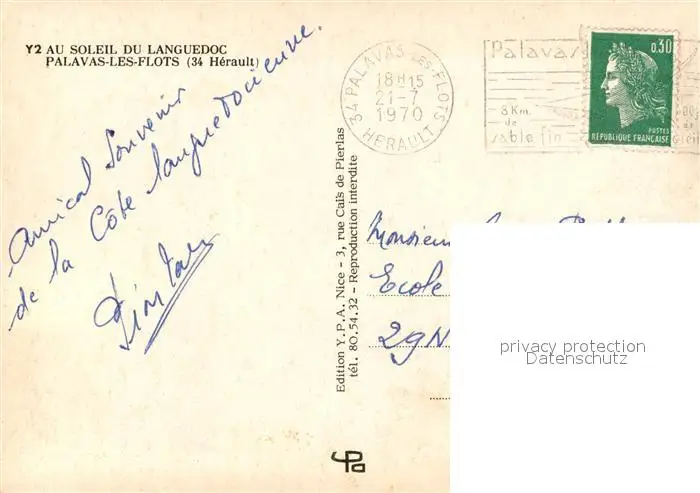 Y2 AU SOLEIL DU LANGUEDOC
PALAVAS-LES-FLOTS (34 Hérault)
Amical Souvenir
de la Côte languedocienne.
Edition Y.P.A. Nice - 3, rue Caïs de Pierlas
tél. 80.54.32 - Reproduction interdite
34 PALAVAS LES-FLOTS
18H15
21-7
1970
HERAULT
Palavas
8 Km.
de
sable fin
0,30
POSTES
RÉPUBLIQUE FRANÇAISE
Monsieur
Ecole
29N
privacy protection
Datenschutz